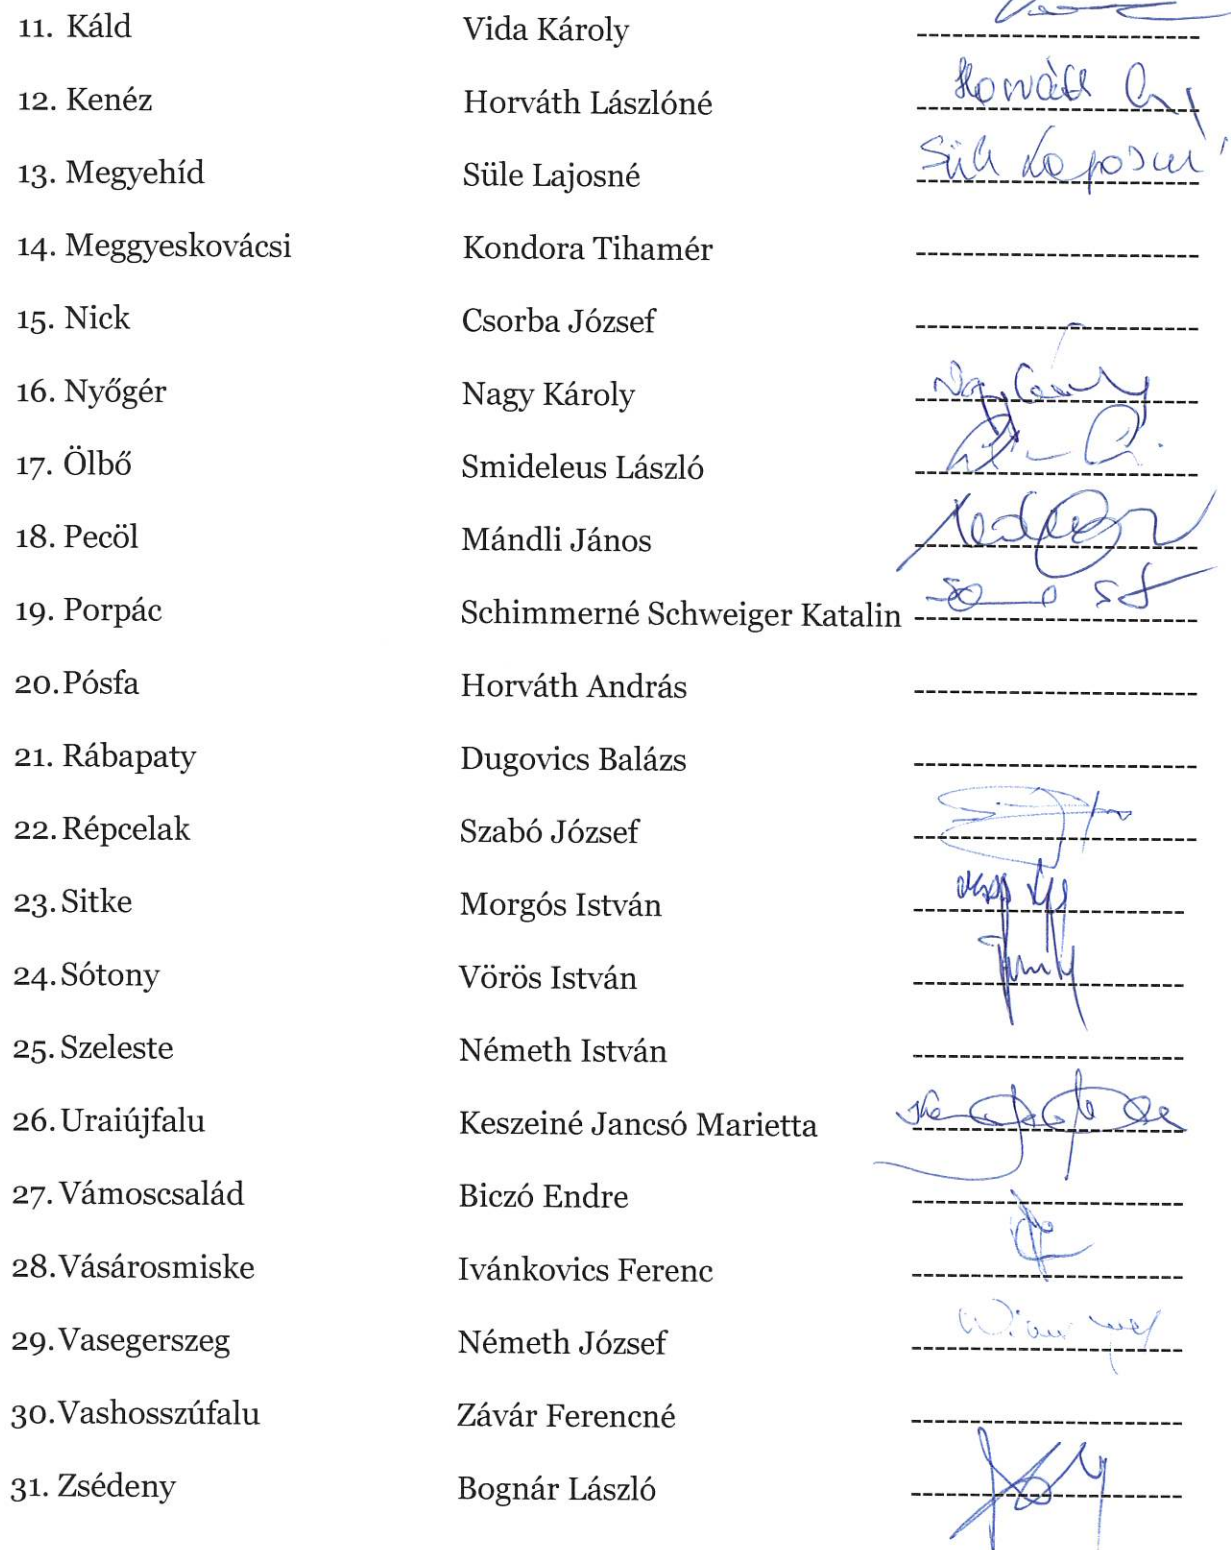 11. Káld Vida Károly
12. Kenéz Horváth Lászlóné Horváth
13. Megyehíd Süle Lajosné Süle Lajosné
14. Meggyeskovácsi Kondora Tihamér
15. Nick Csorba József
16. Nyőgér Nagy Károly Nagy Károly
17. Ölbő Smideleus László
18. Pecöl Mándli János
19. Porpác Schimmerné Schweiger Katalin
20. Pósfa Horváth András
21. Rábapaty Dugovics Balázs
22. Répcelak Szabó József
23. Sitke Morgós István
24. Sótony Vörös István
25. Szeleste Németh István
26. Uraiújfalu Keszeiné Jancsó Marietta
27. Vámoscsalád Biczó Endre
28. Vásárosmiske Ivánkovics Ferenc
29. Vasegerszeg Németh József
30. Vashosszúfalu Závár Ferencné
31. Zsédeny Bognár László